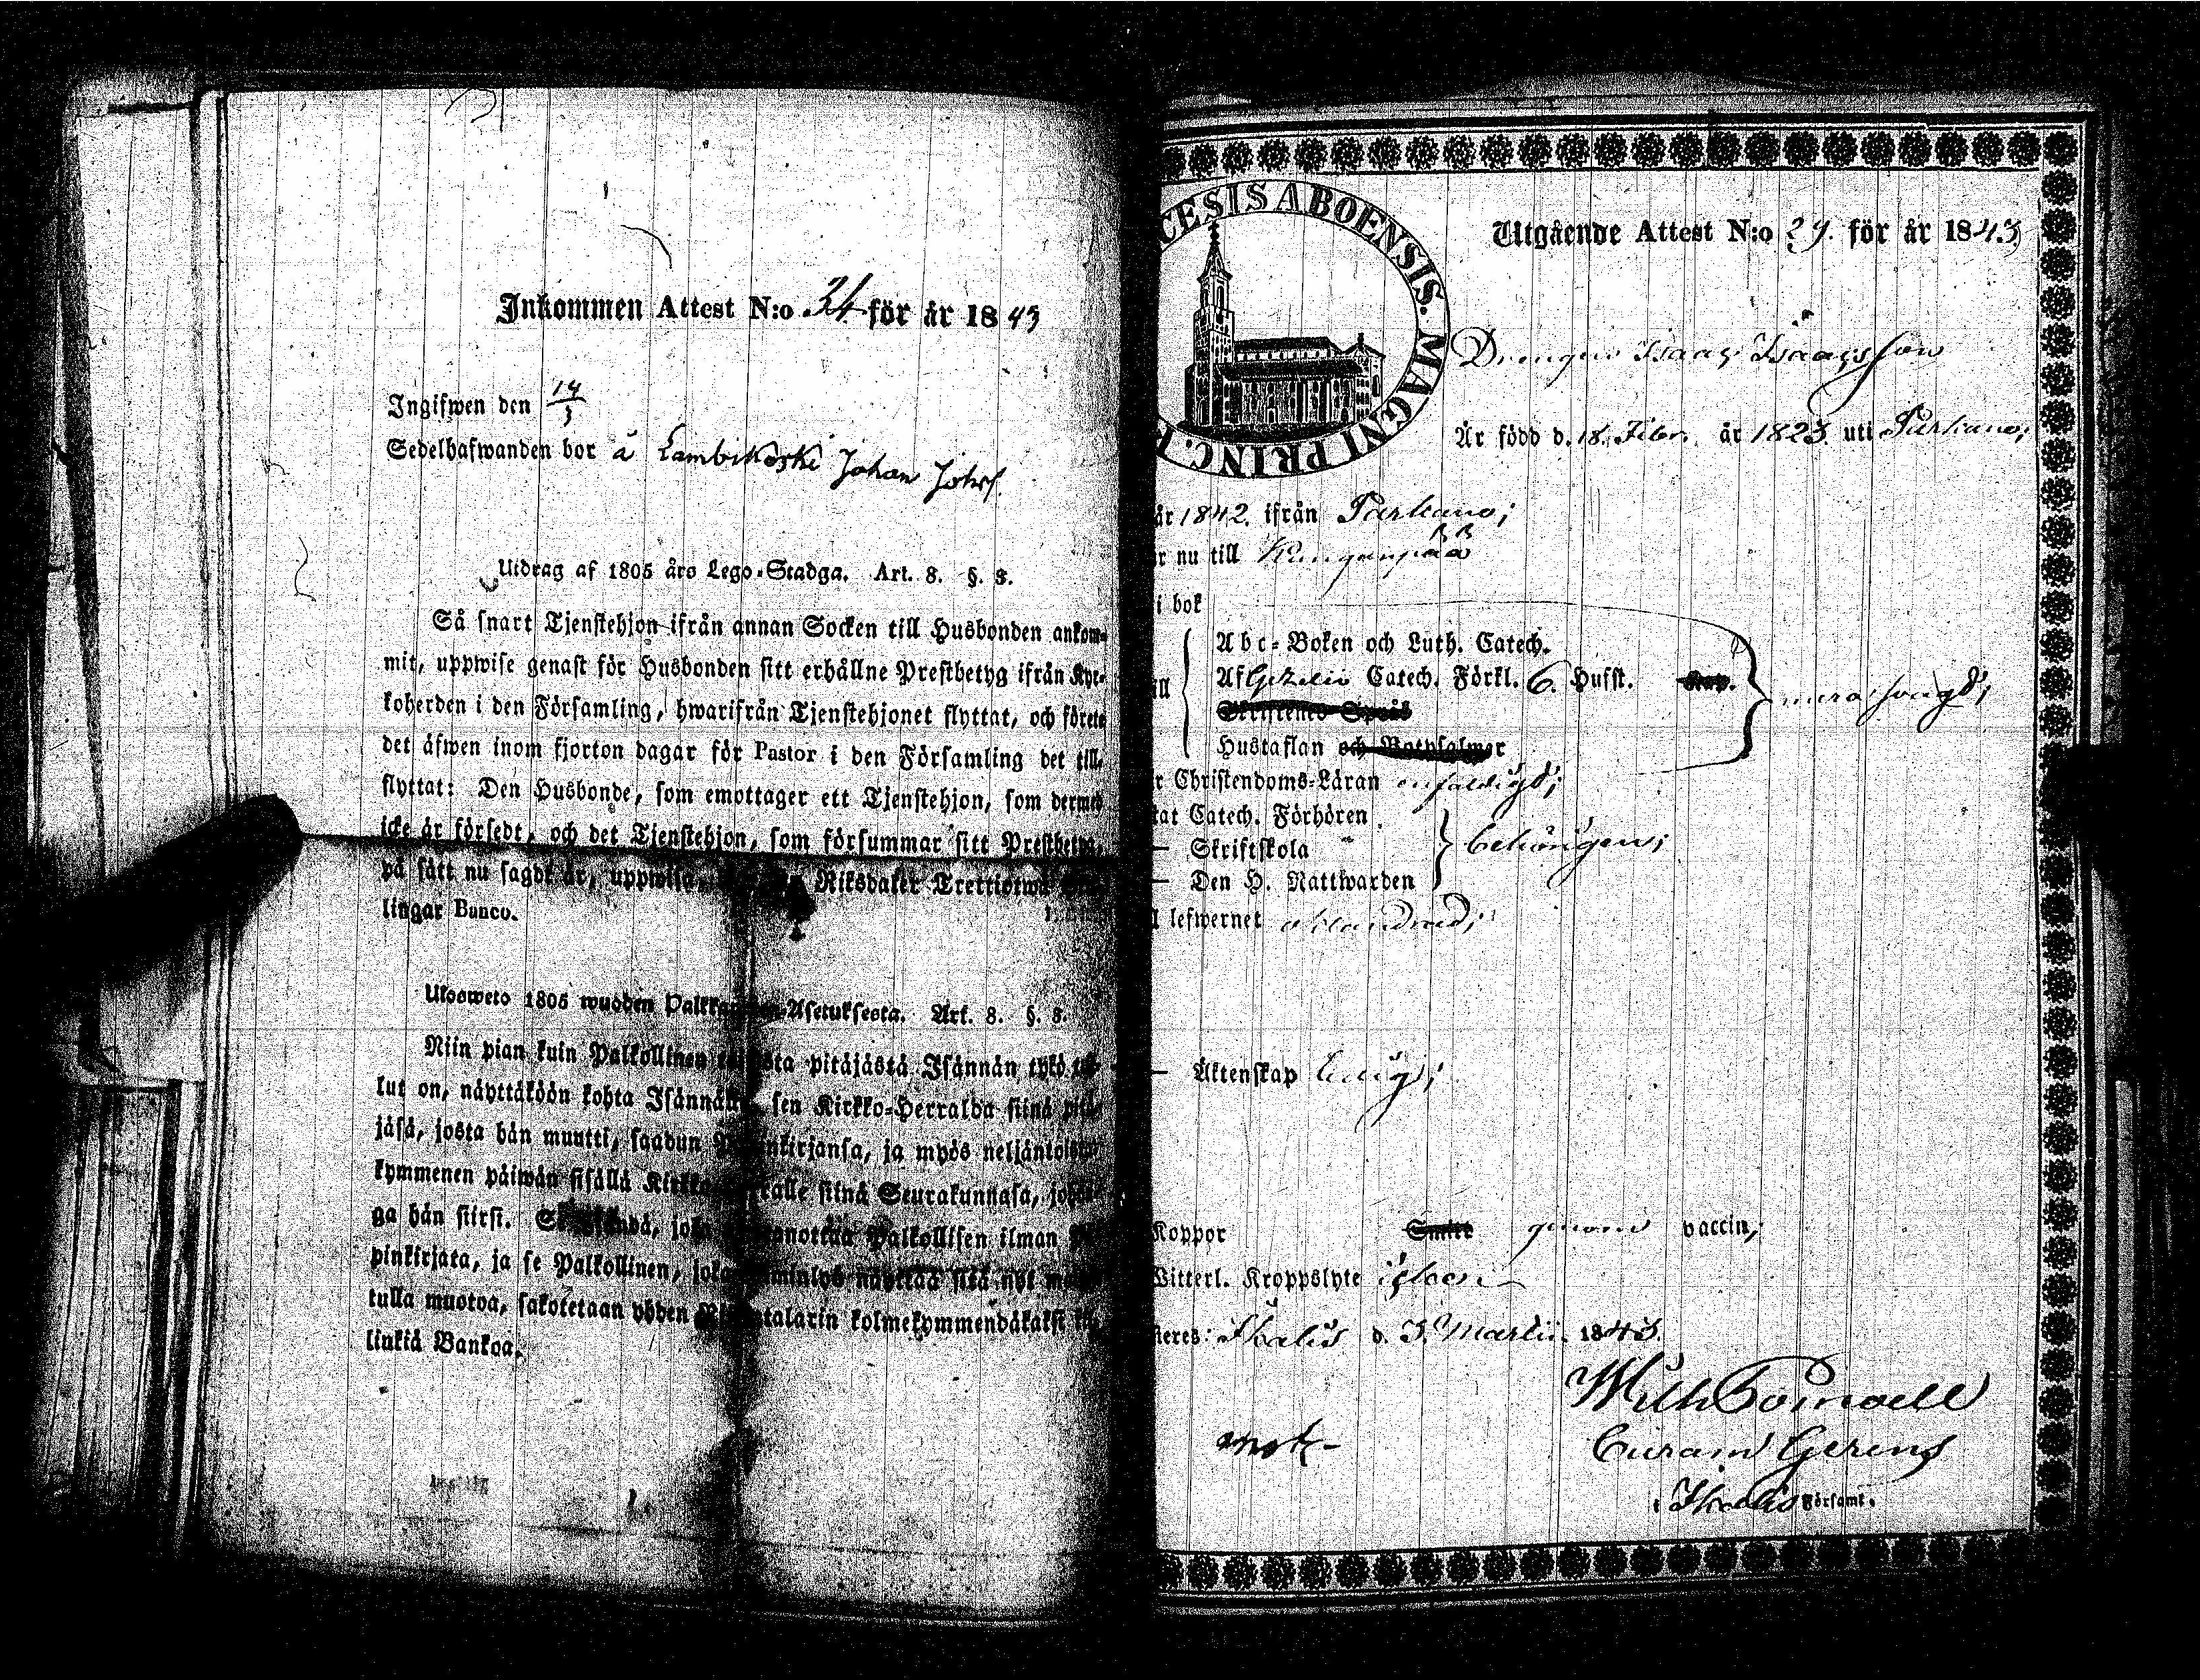 Inkommen Attest N:o 34 för år 1843
Ingifwen den 14/3
Sedelhafwanden bor å Lambikoski Johan Johss.
Utdrag af 1805 års Lego-Stadga. Art. 8. §. 3.
Så snart Tjenstehjon ifrån annan Socken till Husbonden ankom-
mit, uppwise genast för Husbonden sitt erhållne Prestbetyg ifrån Kyr-
koherden i den Församling, hwarifrån Tjenstehjonet flyttat, och förete
det äfwen inom fjorton dagar för Pastor i den Församling det till-
flyttat: Den Husbonde, som emottager ett Tjenstehjon, som dermed
icke är försedt, och det Tjenstehjon, som försummar sitt Prestbetyg,
på sätt nu sagdt är, uppwisa, Riksdaler Trettiotwå
lingar Banco.
Ulosweto 1805 wuoden Asetuksesta. Art. 8. §. 3.
Niin pian kuin Palkollinen pitäjästä Isännän tykö
lut on, näyttäköön kohta Isännälle sen Kirkko-Herralda siinä
jäsä, josta hän muutti, saadun ja myös neljäntoista
kymmenen päiwän sisällä siinä Seurakunnasa, johon-
ga hän siirsi. Palkollisen ilman
pinkirjata, ja se Palkollinen, näyttää sitä nyt
tulla muotoa, sakotetaan yhden kolmekymmendäkaksi
linkiä Bankoa.
DIŒCESIS ABOENSIS. MAGNI PRINC.
Utgående Attest N:o 29. för år 1843
Drengen Isaac Isaacsson
Är född d. 18. Febr. år 1823 uti Parkano;
år 1842. ifrån Parkano;
r nu till Kanganpää
i bok
Abc-Boken och Luth. Catech.
ill Af Gezelii Catech. Förkl. 6. Husst.
Hustaflan och Botpsalmer
r Christendoms-Läran enfaldigt;
tat Catech. Förhören
— Skriftskola behörigen;
— Den H. Nattwarden
l lefwernet oklandrad;
— Äktenskap ledig;
Koppor genom vaccin;
Witterl. Kroppslyte
steres: Ikalis d. 3. Martii 1843.
Curam Gerens
i Ikalis Församl.